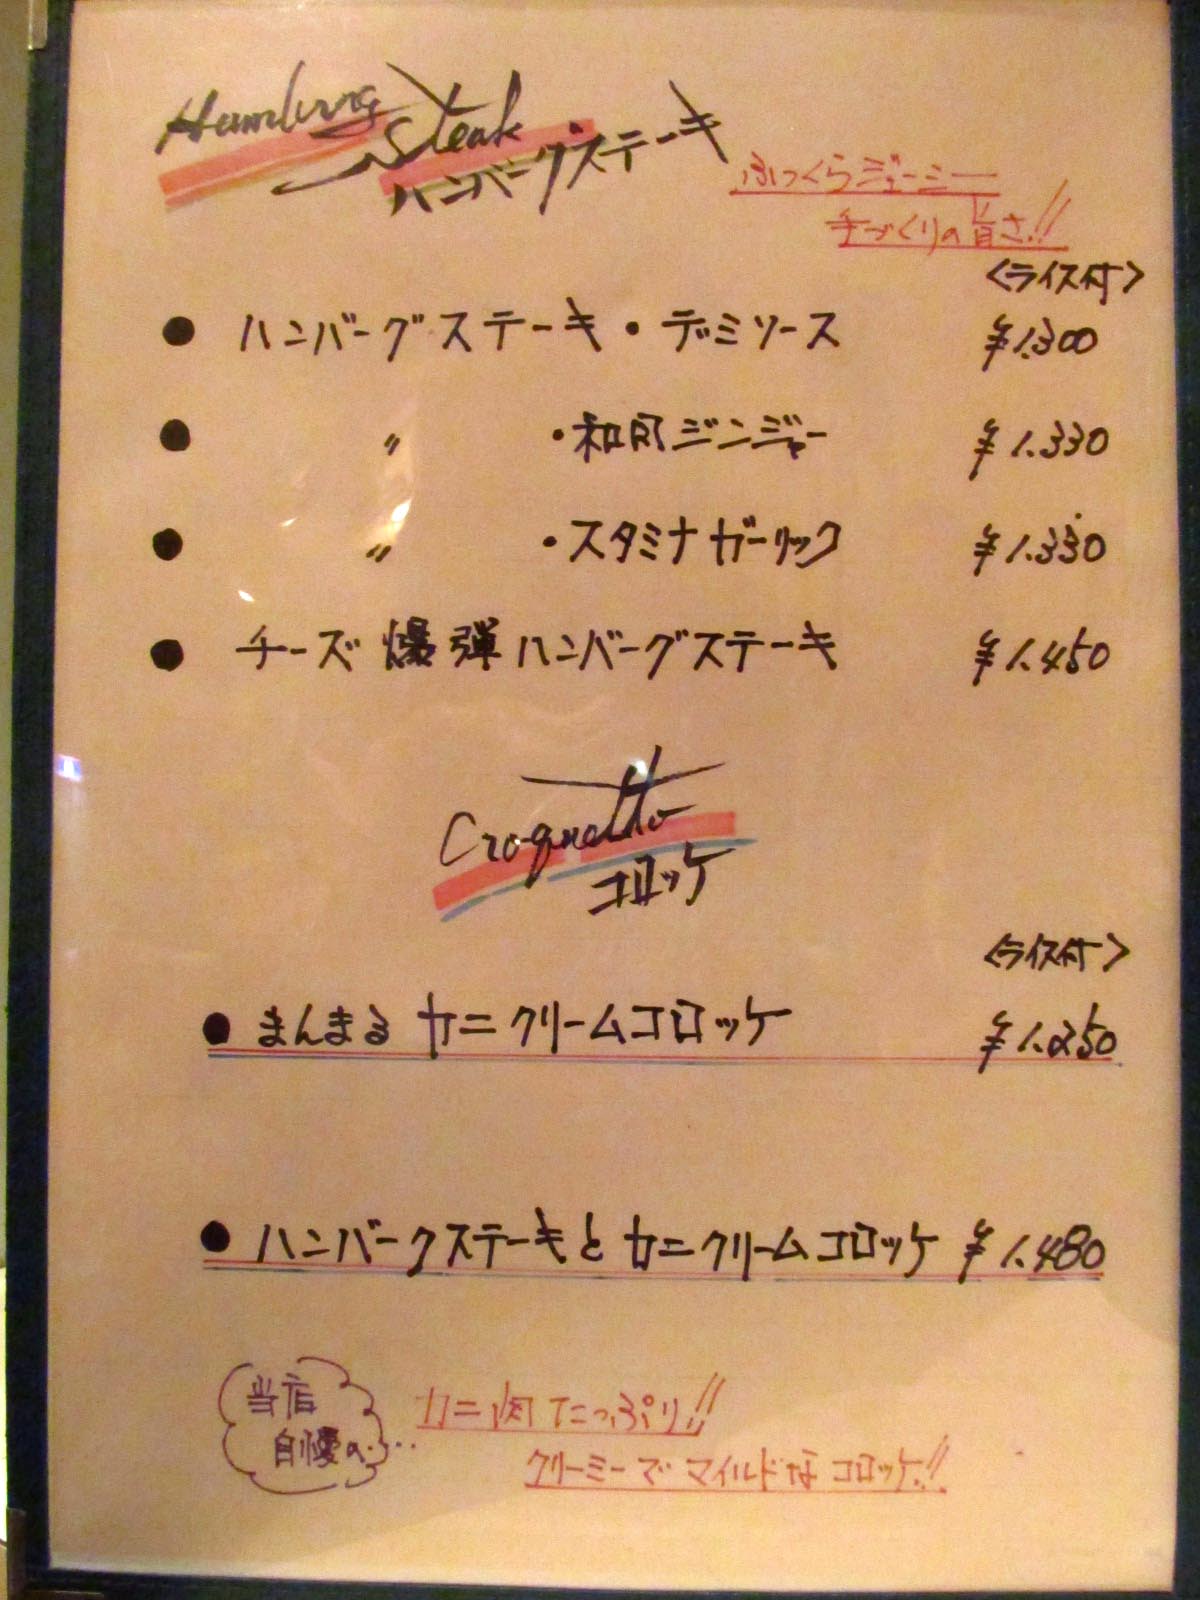 Hamburg
Steak
ハンバーグステーキ
ふっくらジューシー
手づくりの旨さ!!
<ライス付>
● ハンバーグステーキ・デミソース ¥1.300
● 〃 ・和風ジンジャー ¥1.330
● 〃 ・スタミナガーリック ¥1.330
● チーズ爆弾ハンバーグステーキ ¥1.450
Croquette
コロッケ
<ライス付>
● まんまるカニクリームコロッケ ¥1.250
● ハンバーグステーキとカニクリームコロッケ ¥1.480
当店
自慢の・・・・
カニ肉たっぷり!!
クリーミーでマイルドなコロッケ!!